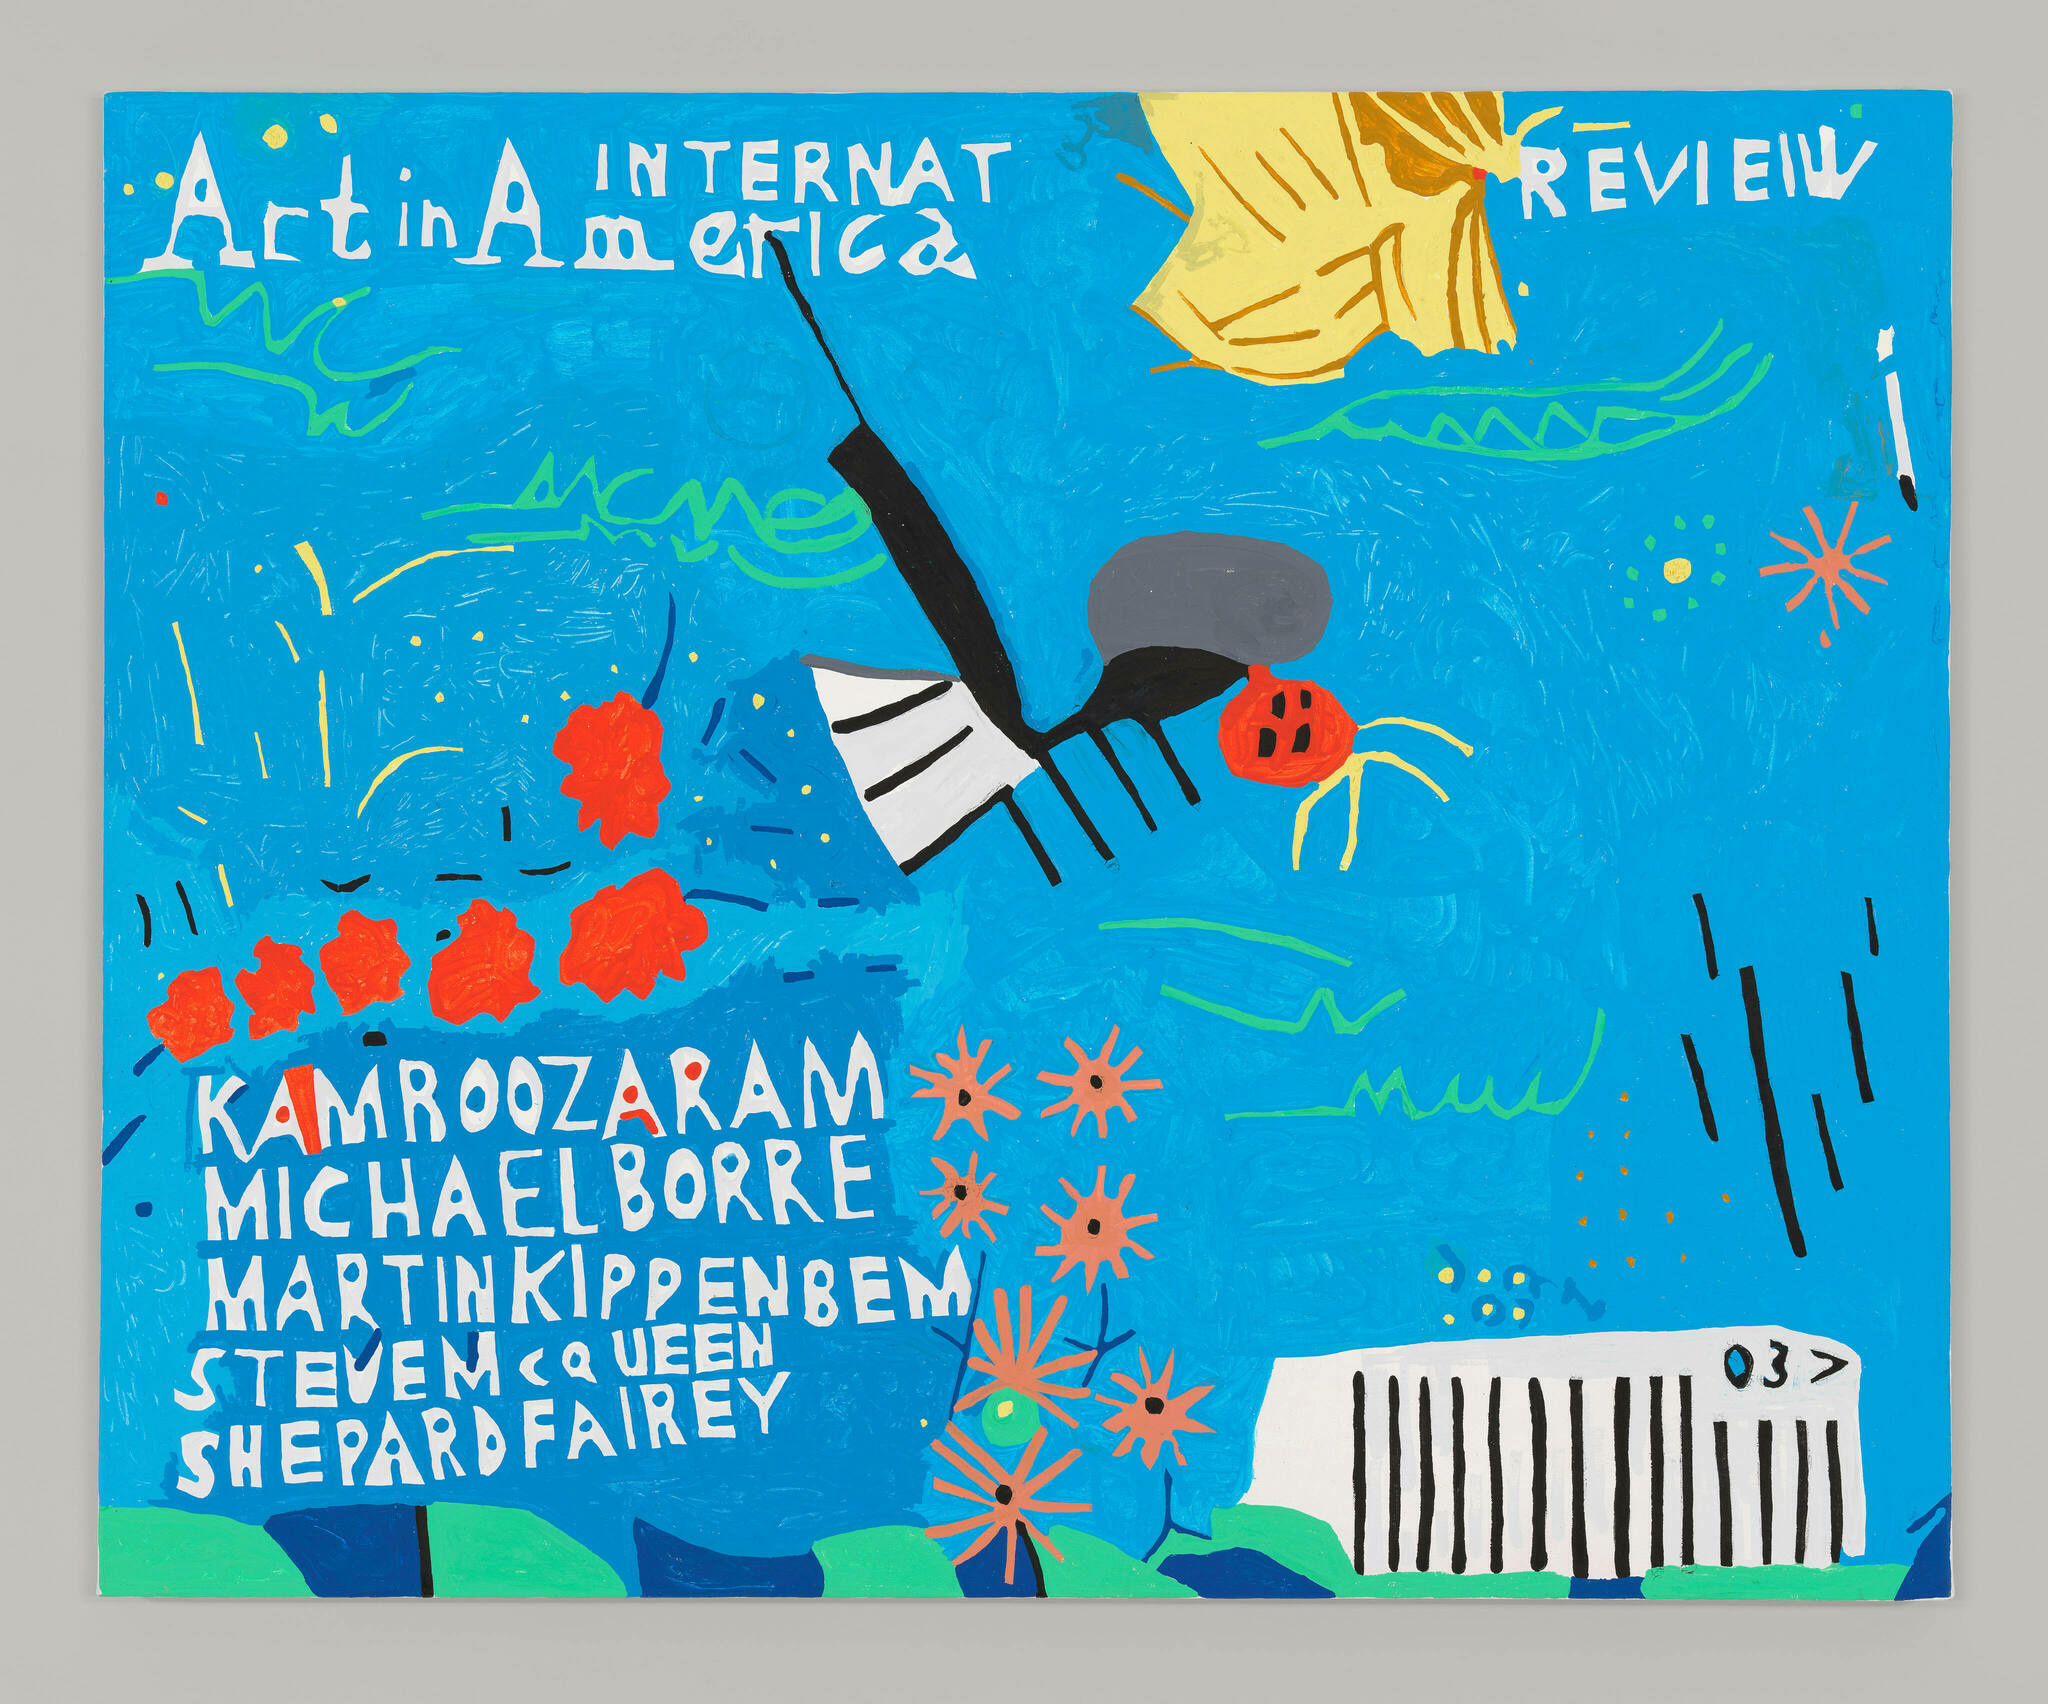 INTERNAT
Art in America
REVIEW
KAMROOZARAM
MICHAELBORRE
MARTINKIPPENBEM
STEVEMcQUEEN
SHEPARDFAIREY
03>